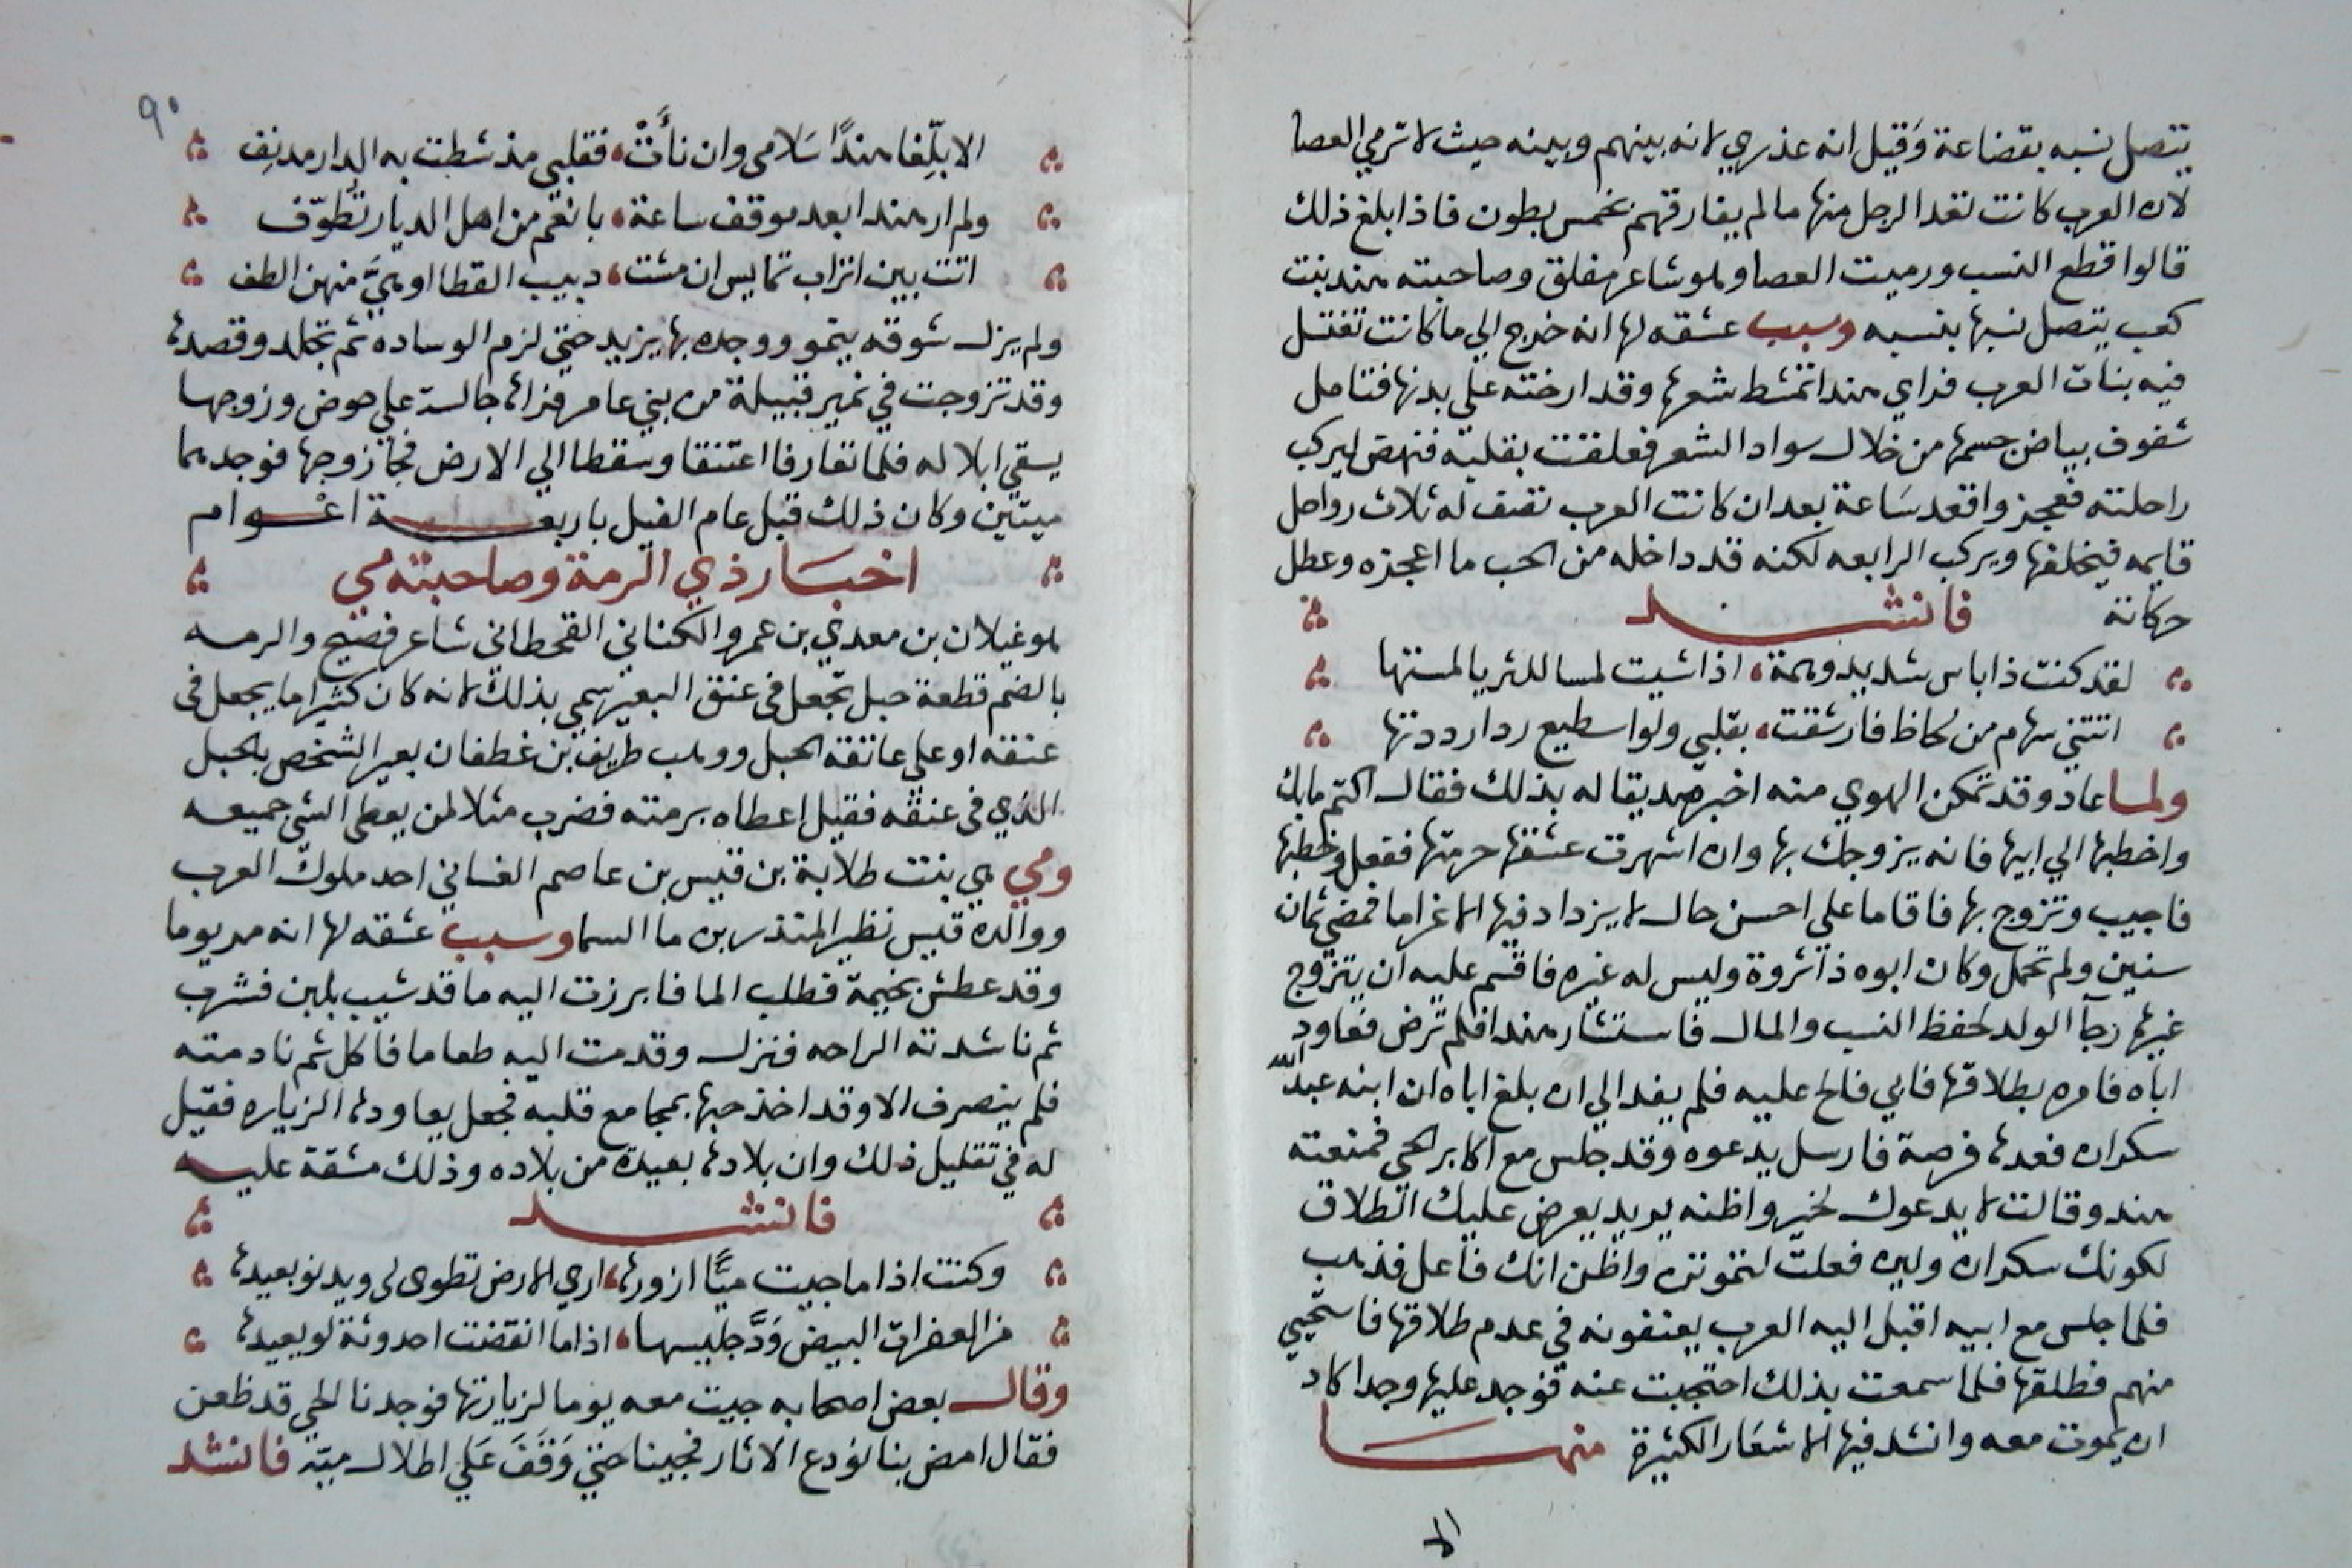 يتصل نسبه بقضاعة وَقيل انه عذري لانه بينهم وبينه حيث لا ترمي العصا
لان العرب كانت تعد الرجل منها ما لم يفارقهم بخمس بطون فاذا بلغ ذلك
قالوا قطع النسب ورميت العصا وهو شاعر مفلق وصاحبته هند بنت
كعب يتصل نسبها بنسبه وسبب عشقه لها انه خرج الي ما كانت تغتسل
فيه بنات العرب فراي هندا تمشط شعرها وقد ارخته علي بدنها فتامل
شفوف بياض جسمها من خلال سواد الشعر فعلقت بقلبه فنهض ليركب
راحلته فعجز واقعد سَاعة بعد ان كانت العرب تقف له ثلاث رواحل
قايمه فيخلفها ويركب الرابعه لكنه قد داخله من الحب ما اعجزه وعطل
حركاته فانشد
لقد كنت ذا باس شديد وهمة، اذا شيت لمسا للثريا لمستها
اتتني سهام من لحاظ فارشقت، بقلبي ولو اسطيع ردا رددتها
ولما عاد وقد تمكن الهوي منه اخبر صديقا له بذلك فقال اكتم ما بك
واخطبها الي ابيها فانه يزوجك بها وان اشهرت عشقها حرمتها ففعل وخطبها
فاجيب وتزوج بها فاقاما علي احسن حال لا يزداد فيها الا غراما فمضي ثمان
سنين ولم تحمل وكان ابوه ذا ثروة وليس له غيره فاقسم عليه ان يتزوج
غيرها رجآ الولد لحفظ النسب والمال فاستشار هندا فلم ترض فعاود
اباه فامره بطلاقها فابي فالح عليه فلم يفد الي ان بلغ اباه ان ابنه عبد الله
سكران فعدها فرصة فارسل يدعوه وقد جلس مع اكابر الحي فمنعته
هند وقالت لا يدعوك لخير واظنه يريد يعرض عليك الطلاق
لكونك سكران ولين فعلت لتموتن واظن انك فاعل فذهب
فلما جلس مع ابيه اقبل اليه العرب يعنفونه في عدم طلاقها فاستحيي
منهم فطلقها فلما سمعت بذلك احتجبت عنه فوجد عليها وجدا كاد
ان يموت معه وانشد فيها الاشعَار الكثيرة منها
الا
٩٠
الا بلّغا هندًا سَلامي وان نأتْ، فقلبي مذ شطت به الدار مدنِف
ولم ار هندا بعد موقف ساعة، بانعم من اهل الديار تُطوّف
اتت بين اتراب تمايس ان مشت، دبيب القطا او هيَّ منهن الطف
ولم يزل شوقه ينمو ووجده بها يزيد حتي لزم الوساده ثم تجلد وقصدها
وقد تزوجت في نمير قبيلة من بني عامر فراها جالسة علي حوض وزوجها
يسقي ابلا له فلما تعارفا اعتنقا وسقطا الي الارض فجا زوجها فوجدهما
ميتين وكان ذلك قبل عام الفيل باربعة اعوام
اخبَار ذي الرمة وصاحبته مي
هو غيلان بن معدي بن عمرو الكناني القحطاني شاعر فصيح والرمه
بالضم قطعة حبل تجعل في عنق البعير سمي بذلك لانه كان كثيرا ما يجعل في
عنقه او علي عاتقه الحبل ووهب طريف بن غطفان بعيرا لشخص بالحبل
الذي في عنقه فقيل اعطاه برمته فضرب مثلا لمن يعطي الشي جميعه
ومي هي بنت طلابة بن قيس بن عاصم الغساني احد ملوك العرب
ووالده قيس نظير المنذر بن ما السما وسبب عشقه لها انه مر يوما
وقد عطش بخيمة فطلب الما فابرزت اليه ما قد شيب بلبن فشرب
ثم ناشدته الراحه فنزل وقدمت اليه طعاما فاكل ثم نادمته
فلم ينصرف الا وقد اخذ حبها بمجامع قلبه فجعل يعاودها الزياره فقيل
له في تقليل ذلك وان بلادها بعيدة من بلاده وذلك مشقة عليه
فانشد
وكنت اذا ما جيت ميًّا ازورها، اري الارض تطوي لي ويدنو بعيدها
من الخفرات البيض وَدَّ جليسها، اذا ما انقضت احدوثة لو يعيدها
وقال بعض اصحابه جيت معه يوما لزيارتها فوجدنا الحي قد ظعن
فقال امض بنا نودع الاثار فجينا حتي وَقَفَ عَلي اطلال ميّه فانشد